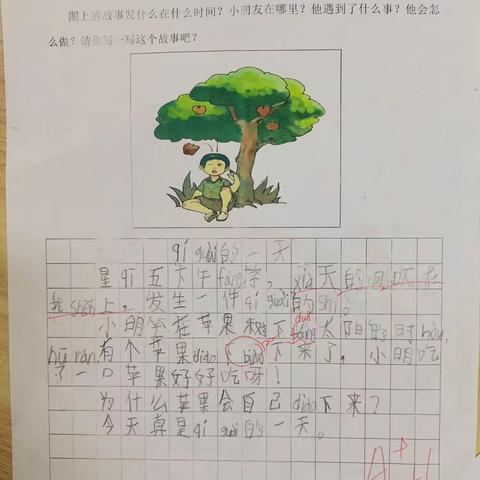 图上的故事发什么在什么时间？小朋友在哪里？他遇到了什么事？他会怎
么做？请你写一写这个故事吧？
qí guài的一天
星qī五下午fàng学，xià天的
shēn上，发生一件qí guài的shì。
小朋坐在苹果树下 duǒ 太阳的时hou，
hū rán有个苹果diào下 下来了，小明吃
了一口苹果好好吃呀！
为什么苹果会自己diào下来？
今天真是qí guài的一天。
A+